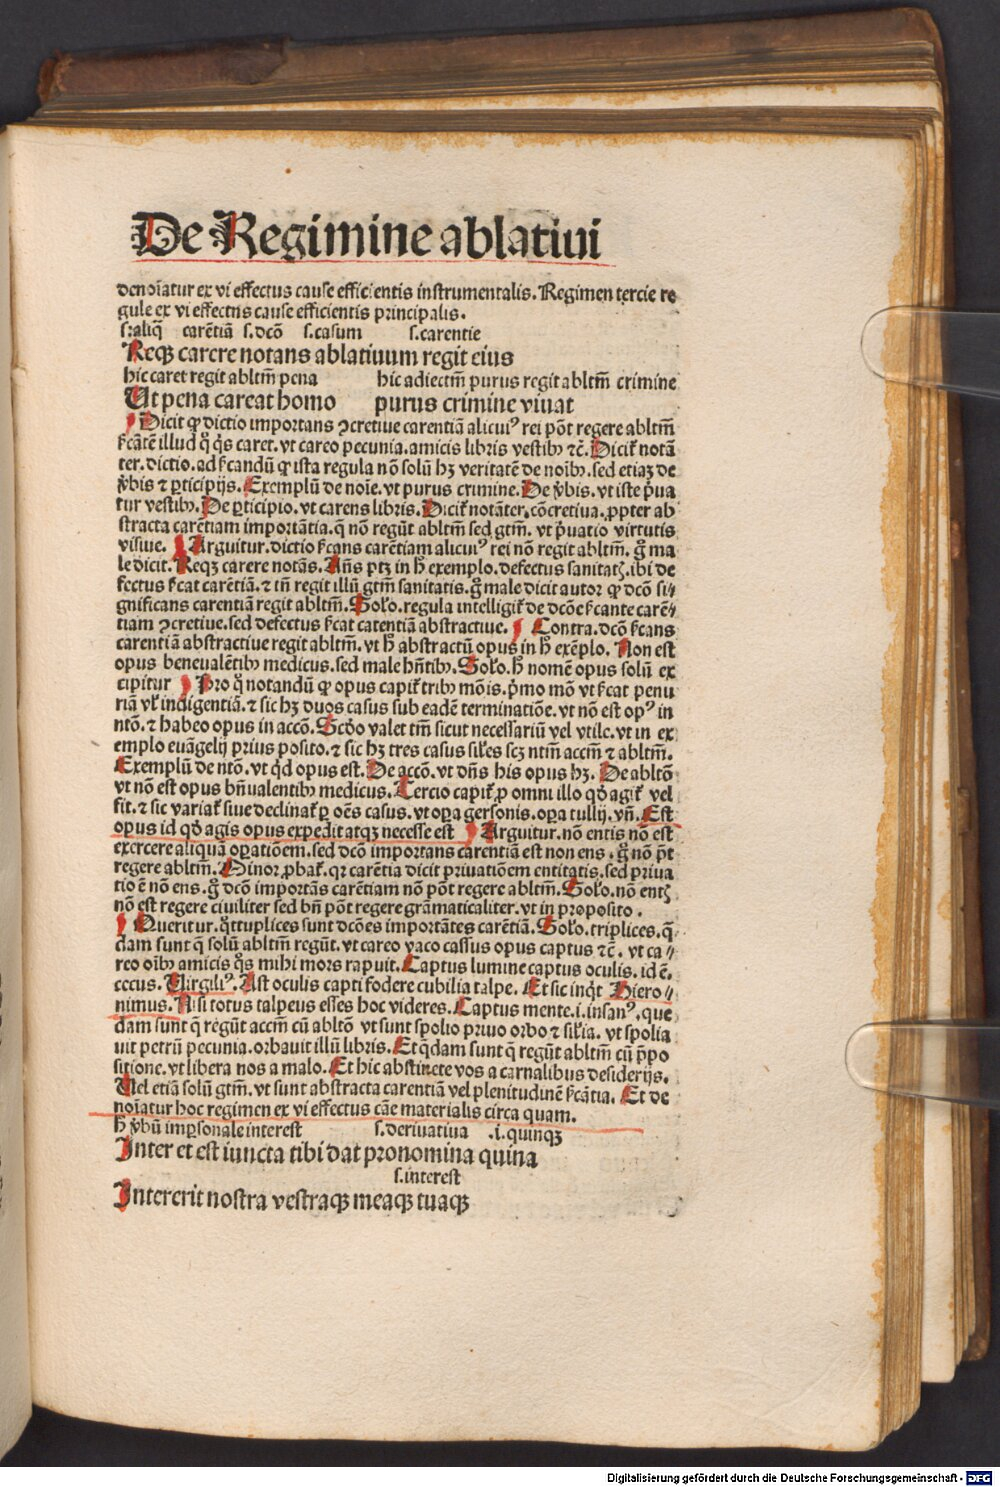 De Regimine ablatiui
denoīatur ex vi effectus cause efficientis instrumentalis. Regimen tercie re
gule ex vi effectus cause efficientis principalis.
s. aliq̄ carētiā s. dcō s. casum s. carentie
Reqꝫ carere notans ablatiuum regit eius
hic caret regit abltm̄ pena hic adiectm̄ purus regit abltm̄ crimine
Ut pena careat homo purus crimine viuat
Dicit ꝙ dictio importans ꝯcretiue carentiā alicuiꝰ rei pōt regere abltm̄
illud caret. vt careo pecunia. amicis libris vestibꝫ ⁊c̄. notā
ter. dictio. ad ꝙ ista regula nō solū hꝫ veritatē de noībꝫ. sed etiaꝫ de
v̄bis ⁊ ꝑticipijs. Exemplū de noīe. vt purus crimine. De v̄bis. vt iste p̄ua
tur vestibꝫ. De ꝑticipio. vt carens libris. notāter. cōcretiua. ꝓpter ab
stracta carētiam importātia. q̄ nō regūt abltm̄ sed gtm̄. vt p̄uatio virtutis
visiue. Arguitur. dictio carētiam alicuiꝰ rei nō regit abltm̄. ma
le dicit. Reqꝫ carere notās. Añs ptꝫ in exemplo. defectus ibi de
fectus carētiā. ⁊ tn̄ regit illū gtm̄ sanitatis. male dicit autor ꝙ dcō si⸗
gnificans carentiā regit abltm̄. regula de dcōe carē⸗
tiam ꝯcretiue. sed defectus catentiā abstractiue. Contra. dcō
carentiā abstractiue regit abltm̄. vt abstractū opus in exēplo. Non est
opus beneualētibꝫ medicus. sed male hn̄tibꝫ. nomē opus solū ex
cipitur Pro notandū ꝙ opus tribꝫ mōis. p̄mo mō vt penu
riā indigentiā. ⁊ sic hꝫ duos casus sub eadē terminatiōe. vt nō est opꝰ in
ntō. ⁊ habeo opus in accō. valet tm̄ sicut necessariū vel vtile. vt in ex
emplo euāgelij prius posito. ⁊ sic hꝫ tres casus scꝫ ntm̄ accm̄ ⁊ abltm̄.
Exemplū de ntō. vt opus est. De accō. vt dn̄s his opus hꝫ. De abltō
vt nō est opus bn̄ualentibꝫ medicus. Tercio omni illo vel
fit. ⁊ sic siue ꝑ oēs casus. vt oꝑa gersonis. oꝑa tullij. vn̄. Est
opus id agis opus expedit atqꝫ necesse est Arguitur. nō entis nō est
exercere aliquā oꝑatiōem. sed dcō importans carentiā est non ens. nō p̄t
regere abltm̄. Minor qꝛ carētia dicit priuatiōem entitatis. sed priua
tio ē nō ens. dcō importās carētiam nō pōt regere abltm̄. nō
nō est regere ciuiliter sed bn̄ pōt regere grāmaticaliter. vt in proposito.
Queritur. sunt dcōes importātes carētiā. triplices. q̄
dam sunt q̄ solū abltm̄ regūt. vt careo vaco cassus opus captus ⁊c̄. vt ca⸗
reo oībꝫ amicis mihi mors rapuit. Captus lumine captus oculis. id ē.
cecus. Virgiliꝰ. Ast oculis capti fodere cubilia talpe. Et sic Hiero⸗
nimus. Nisi totus talpeus esses hoc videres. Captus mente. i. insanꝰ. que
dam sunt q̄ regūt accm̄ cū abltō vt sunt spolio priuo orbo ⁊ vt spolia
uit petrū pecunia. orbauit illū libris. Et q̄dam sunt q̄ regūt abltm̄ cū p̄po
sitione. vt libera nos a malo. Et hic abstinete vos a carnalibus desiderijs.
Uel etiā solū gtm̄. vt sunt abstracta carentiā vel plenitudinē Et de
noīatur hoc regimen ex vi effectus cāe materialis circa quam.
v̄bū imꝑsonale interest s. deriuatiua .i. quinqꝫ
Inter et est iuncta tibi dat pronomina quina
s. interest
Intererit nostra vestraqꝫ meaqꝫ tuaqꝫ
Digitalisierung gefördert durch die Deutsche Forschungsgemeinschaft - DFG